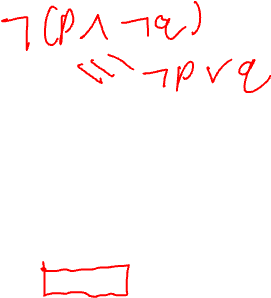 ¬(p ∧ ¬q)
≡ ¬p ∨ q